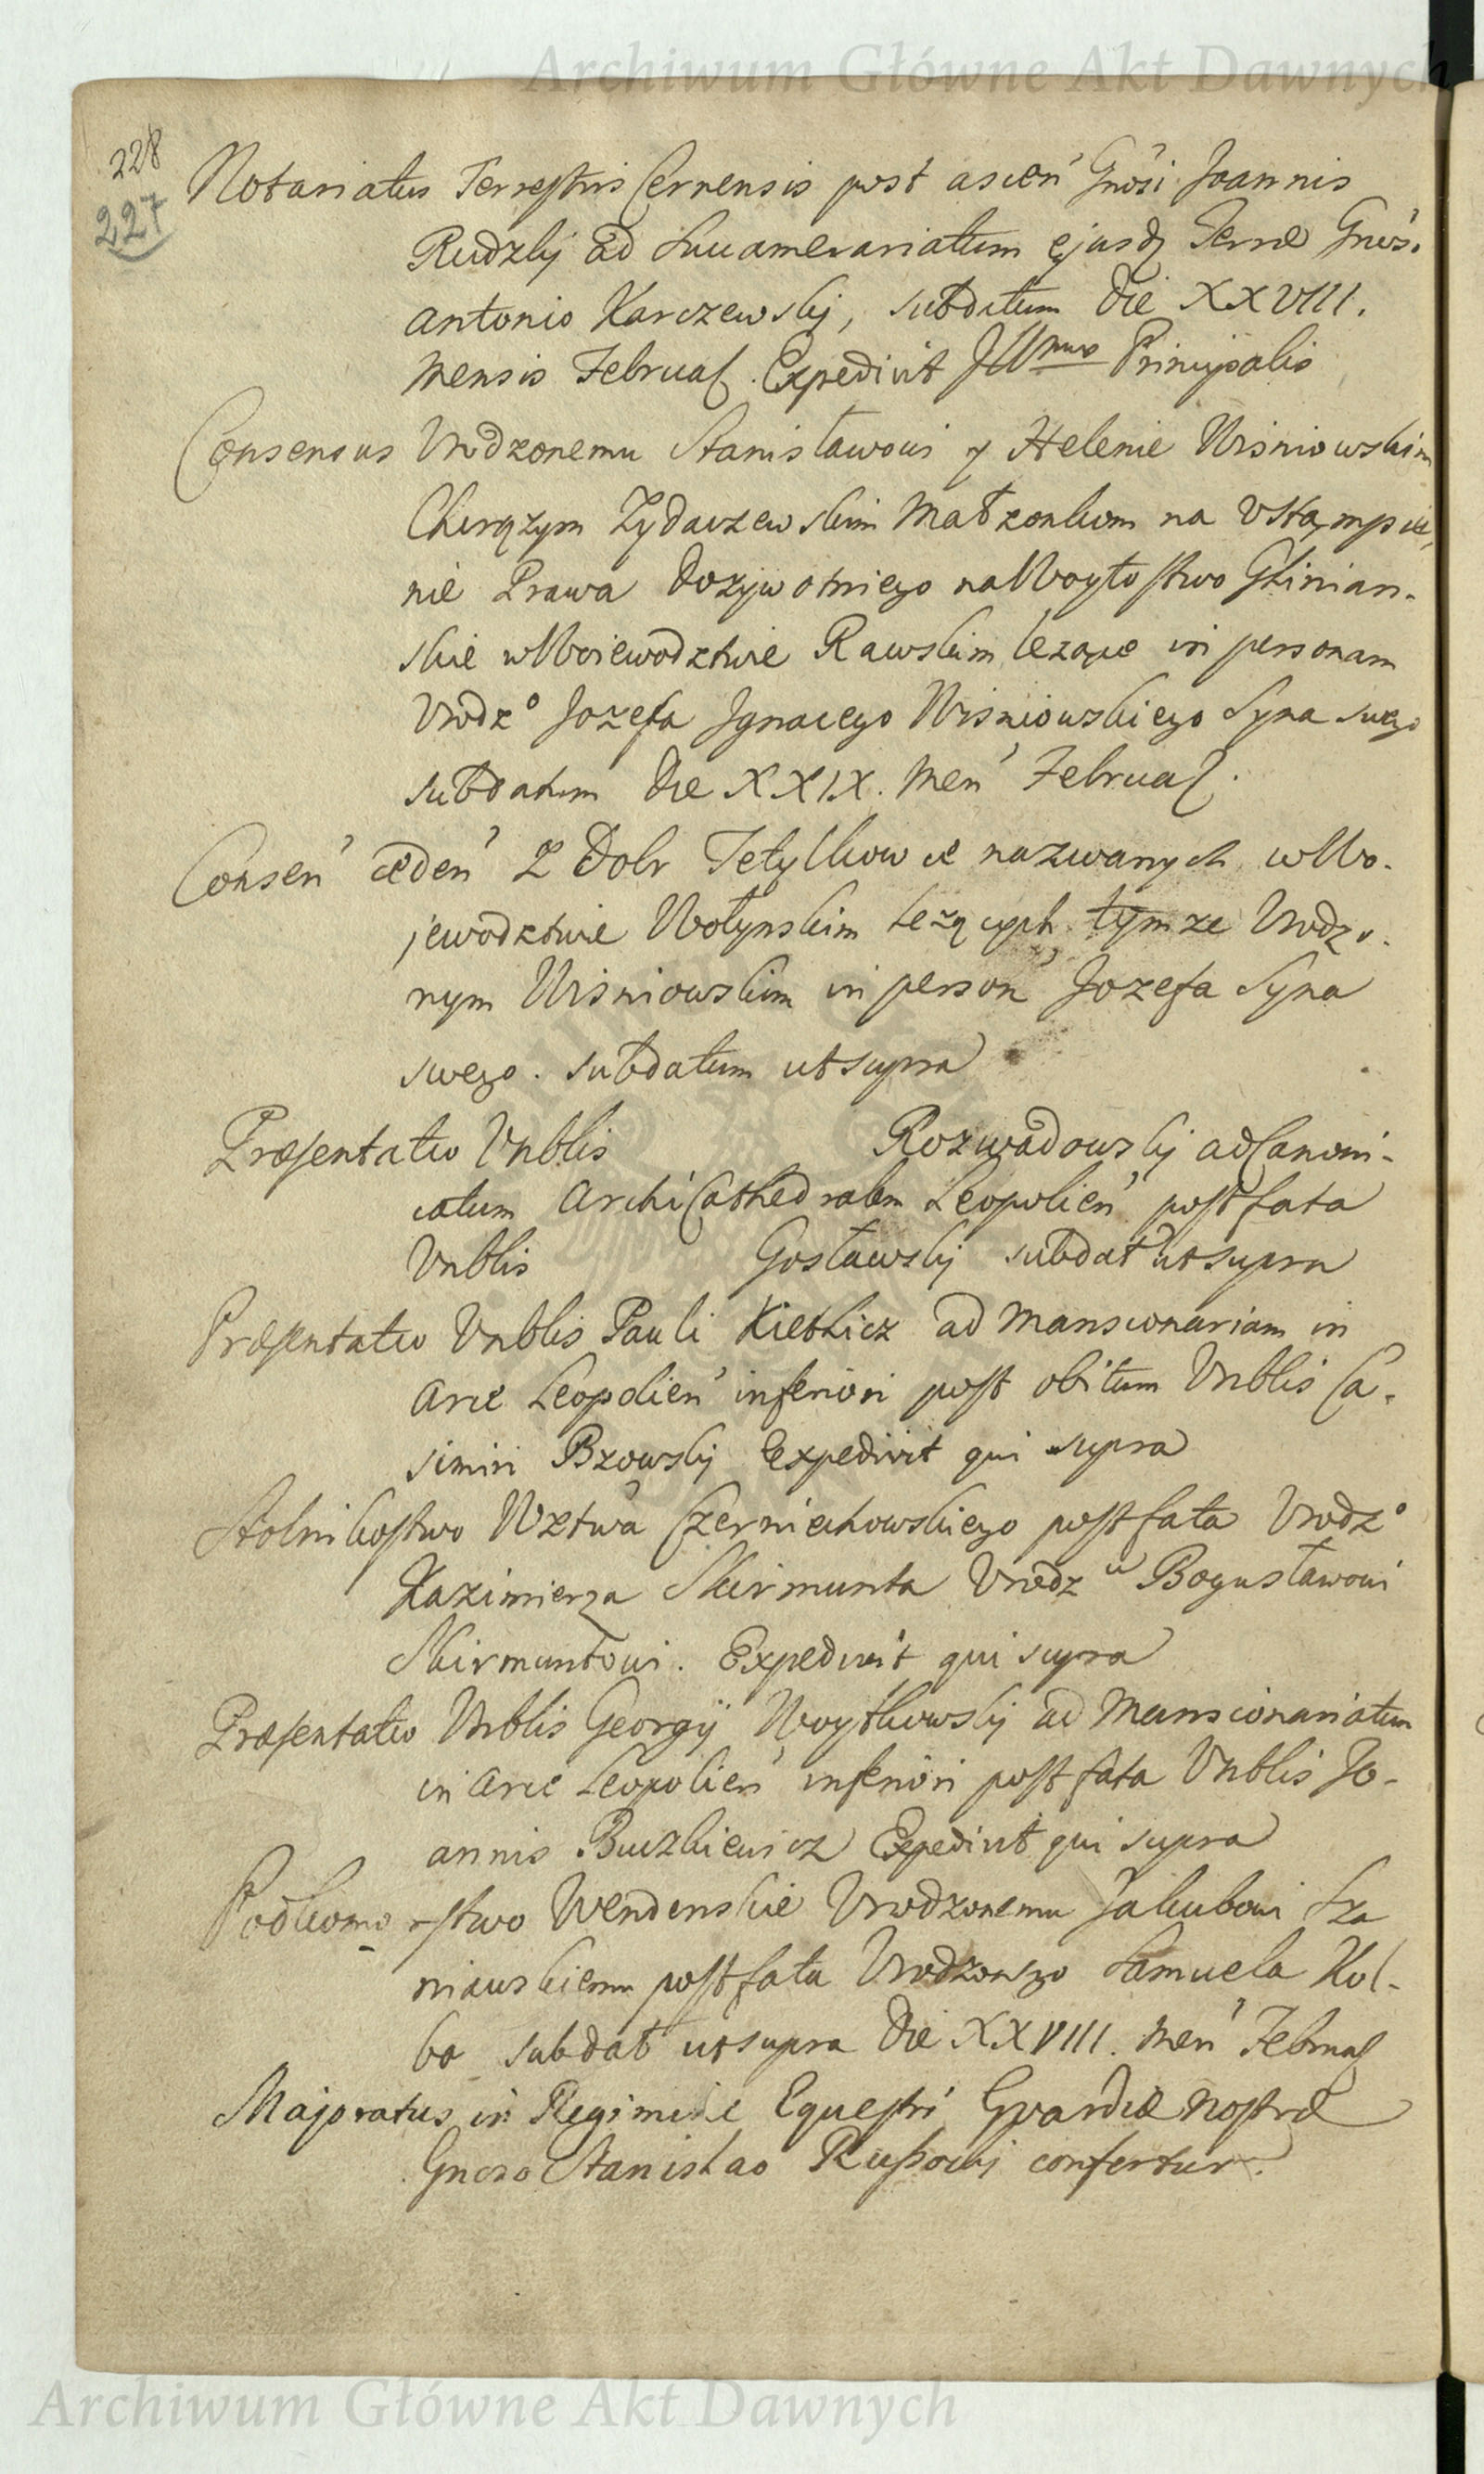 Archiwum Główne Akt Dawnych
228
227
Notariatus Terrestris Cernensis post ascen' Gnosi Joannis
Rudzky ad Succamerariatum ejusd Terræ Gnos.
Antonio Karczewskij, subdatum die XXVIII.
Mensis Februar. Expedivit Illmus Principalis
Consensus Urodzonemu Stanisławowi y Helenie Wisniowskim
Chorązym Zydaczewskim Małzonkom na Ustąmpie,
nie Prawa dozywotniego na Woytostwo Glinian-
skie w Woiewodztwie Rawskim lezące in personam
Urodz° Jozefa Jgnacego Wisniowskiego Syna swego
subdatum die XXIX. Men' Februar.
Consen' ceden' Z Dobr Tetylkowce nazwanych w Wo-
jewodztwie Wołynskim lezących tymze Urodzo-
nym Wisniowskim in person' Jozefa Syna
swego. subdatum ut supra
Præsentatio Vnblis Rozwadowskij ad Canoni-
catum Archi Cathedralem Leopolien' post fata
Vnblis Gosławskij subdat ut supra
Præsentatio Vnblis Pauli Kietlicz ad Mansionariam in
Arce Leopolien' inferiori post obitum Vnblis Ca-
simiri Bzowskij Expedivit qui supra
Stolnikostwo Wztwa Czerniechowskiego post fata Urodz°
Kazimierza Skirmunta Urodzu Bogusławowi
Skirmuntowi. Expedivit qui supra
Præsentatio Vnblis Georgij Woytkowskij ad Mansionariatum
in Arce Leopolien' inferiori post fata Vnblis Jo-
annis Buczkiewicz Expedivit qui supra
Podkomorstwo Wendenskie Urodzonemu Jakubowi Sza
niawskiemu post fata Urodzonego Samuela Kol-
bo subdat ut supra die XXVIII. Men' Februar
Majoratus in Regimine Equestri Gvardiæ nostræ
Gnoso Stanislao confertur.
Archiwum Główne Akt Dawnych